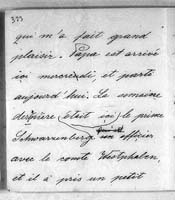 323
qui m'a fait grand
plaisir. Papa est arrivé
ici mercredi, et partà
aujourd'hui. La semaine
dernière était ici le prince
Schwarzenberg un officier
avec le comte Westphalen,
et il a pris un petit